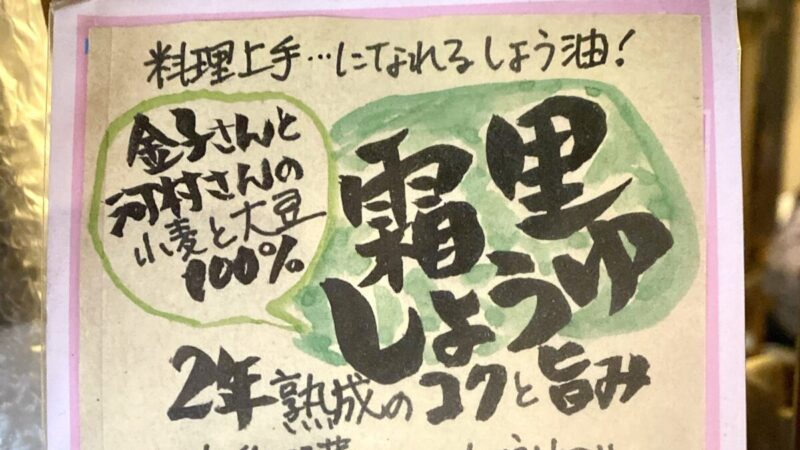 料理上手…になれるしょう油!
金子さんと
河村さんの
小麦と大豆
100%
霜里
しょうゆ
2年熟成のコクと旨み